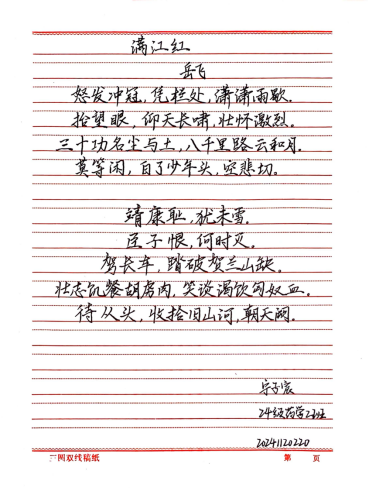 满江红
岳飞
怒发冲冠,凭栏处,潇潇雨歇.
抬望眼,仰天长啸,壮怀激烈.
三十功名尘与土,八千里路云和月.
莫等闲,白了少年头,空悲切.
靖康耻,犹未雪.
臣子恨,何时灭.
驾长车,踏破贺兰山缺.
壮志饥餐胡虏肉,笑谈渴饮匈奴血.
待从头,收拾旧山河,朝天阙.
24级药学2班
20241120220
三网双线稿纸 第 页